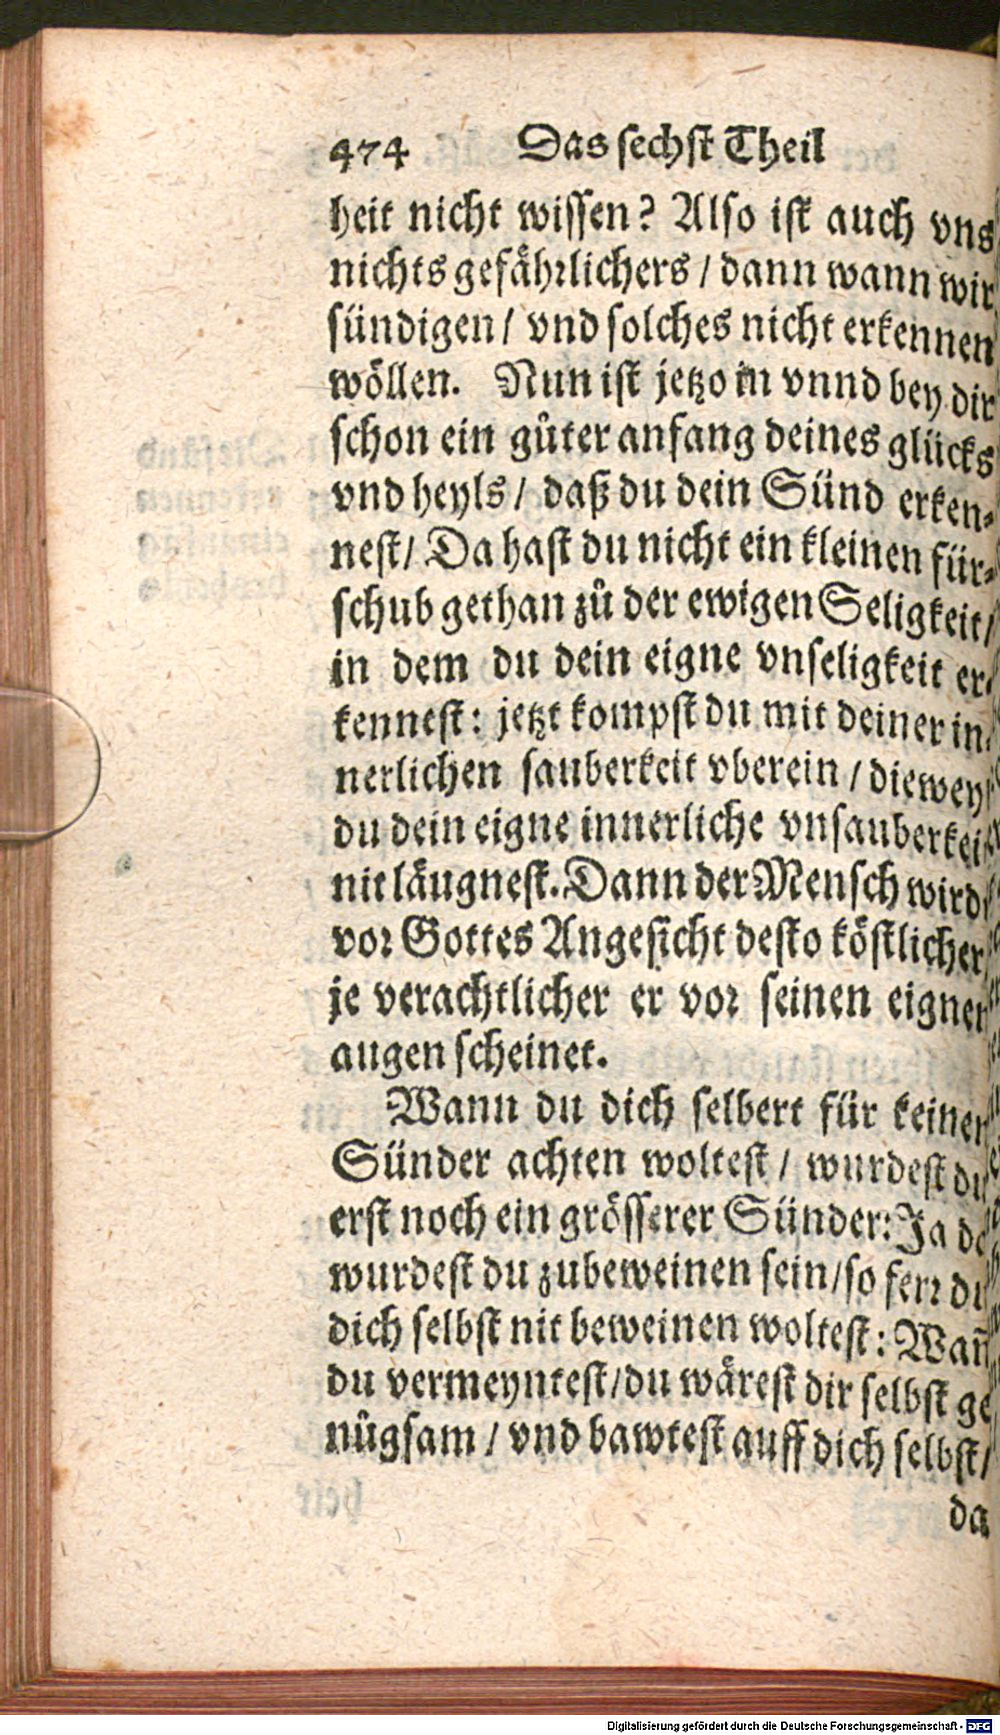 474 Das sechst Theil
heit nicht wissen? Also ist auch vns
nichts gefährlichers / dann wann wir
sündigen / vnd solches nicht erkennen
wöllen. Nun ist jetzo in vnnd bey dir
schon ein gůter anfang deines glücks
vnd heyls / daß du dein Sünd erken-
nest / Da hast du nicht ein kleinen für-
schub gethan zů der ewigen Seligkeit /
in dem du dein eigne vnseligkeit er-
kennest: jetzt kompst du mit deiner in-
nerlichen sauberkeit vberein / dieweyl
du dein eigne innerliche vnsauberkeit
nit läugnest. Dann der Mensch wird
vor Gottes Angesicht desto köstlicher
je verachtlicher er vor seinen eignen
augen scheinet.
Wann du dich selbert für keinen
Sünder achten woltest / wurdest du
erst noch ein grösserer Sünder: Ja
wurdest du zubeweinen sein / so ferr du
dich selbst nit beweinen woltest: Wañ
du vermeyntest / du wärest dir selbst ge
nůgsam / vnd bawtest auff dich selbst /
da
Digitalisierung gefördert durch die Deutsche Forschungsgemeinschaft - DFG